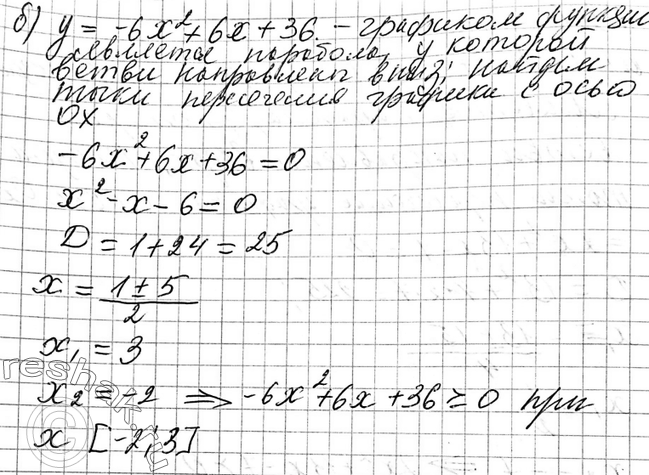 б) y = -6x² + 6x + 36. - графиком функции
является парабола, у которой
ветви направлены вниз; найдём
точки пересечения графика с осью
OX
-6x² + 6x + 36 = 0
x² - x - 6 = 0
D = 1 + 24 = 25
x = (1 ± 5)/2
x₁ = 3
x₂ = -2 ⇒ -6x² + 6x + 36 ≥ 0 при
x [-2; 3]
reshak.ru